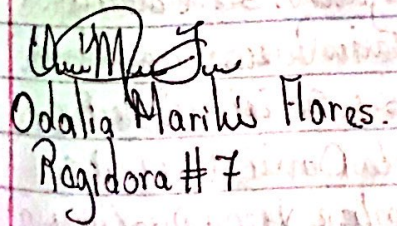 Odalia Mariluz Flores.
Ragidora # 7